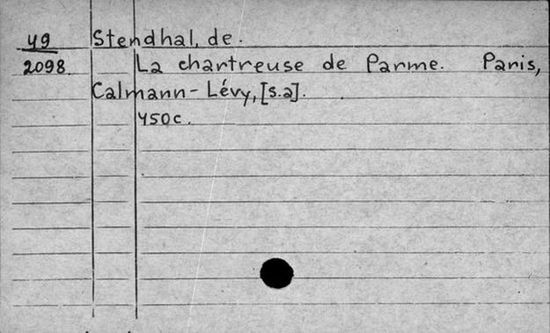 49 Stendhal, de.
2098. La chartreuse de Parme. Paris,
Calmann-Lévy, [s.a].
450c.